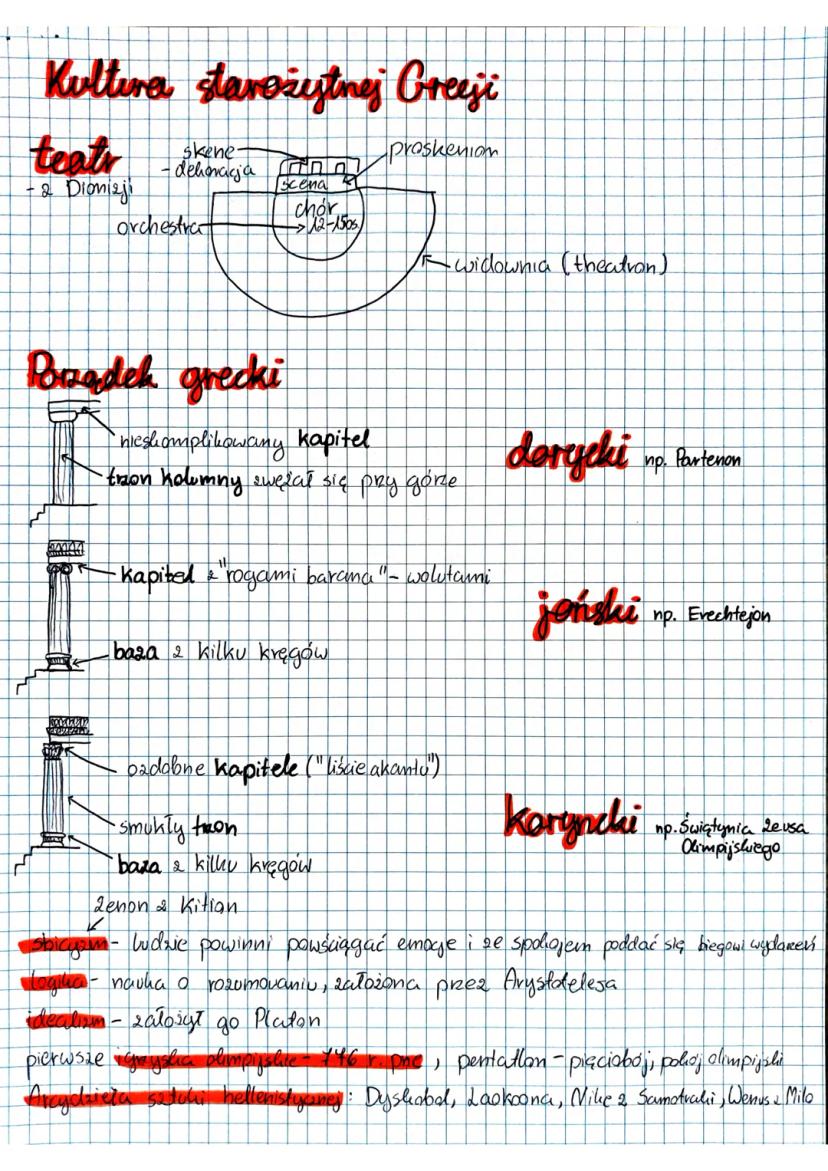 Kultura starożytnej Grecji
teatr
- z Dionizji
skene
- dekoracja
proskenion
scena
chór
12-15os.
orchestra
widownia (theatron)
Porządek grecki
nieskomplikowany kapitel
trzon kolumny zwężał się przy górze
dorycki np. Partenon
kapitel z "rogami barana" - wolutami
joński np. Erechtejon
baza z kilku kręgów
ozdobne kapitele ("liście akantu")
smukły trzon
koryncki np. Świątynia Zeusa
Olimpijskiego
baza z kilku kręgów
Zenon z Kition
stoicyzm - ludzie powinni powściągać emocje i ze spokojem poddać się biegowi wydarzeń
logika - nauka o rozumowaniu, założona przez Arystotelesa
idealizm - założył go Platon
pierwsze igrzyska olimpijskie - 776 r. pne, pentatlon - pięciobój, pokój olimpijski
Arcydzieła sztuki hellenistycznej: Dyskobol, Laokoona, Nike z Samotraki, Wenus z Milo